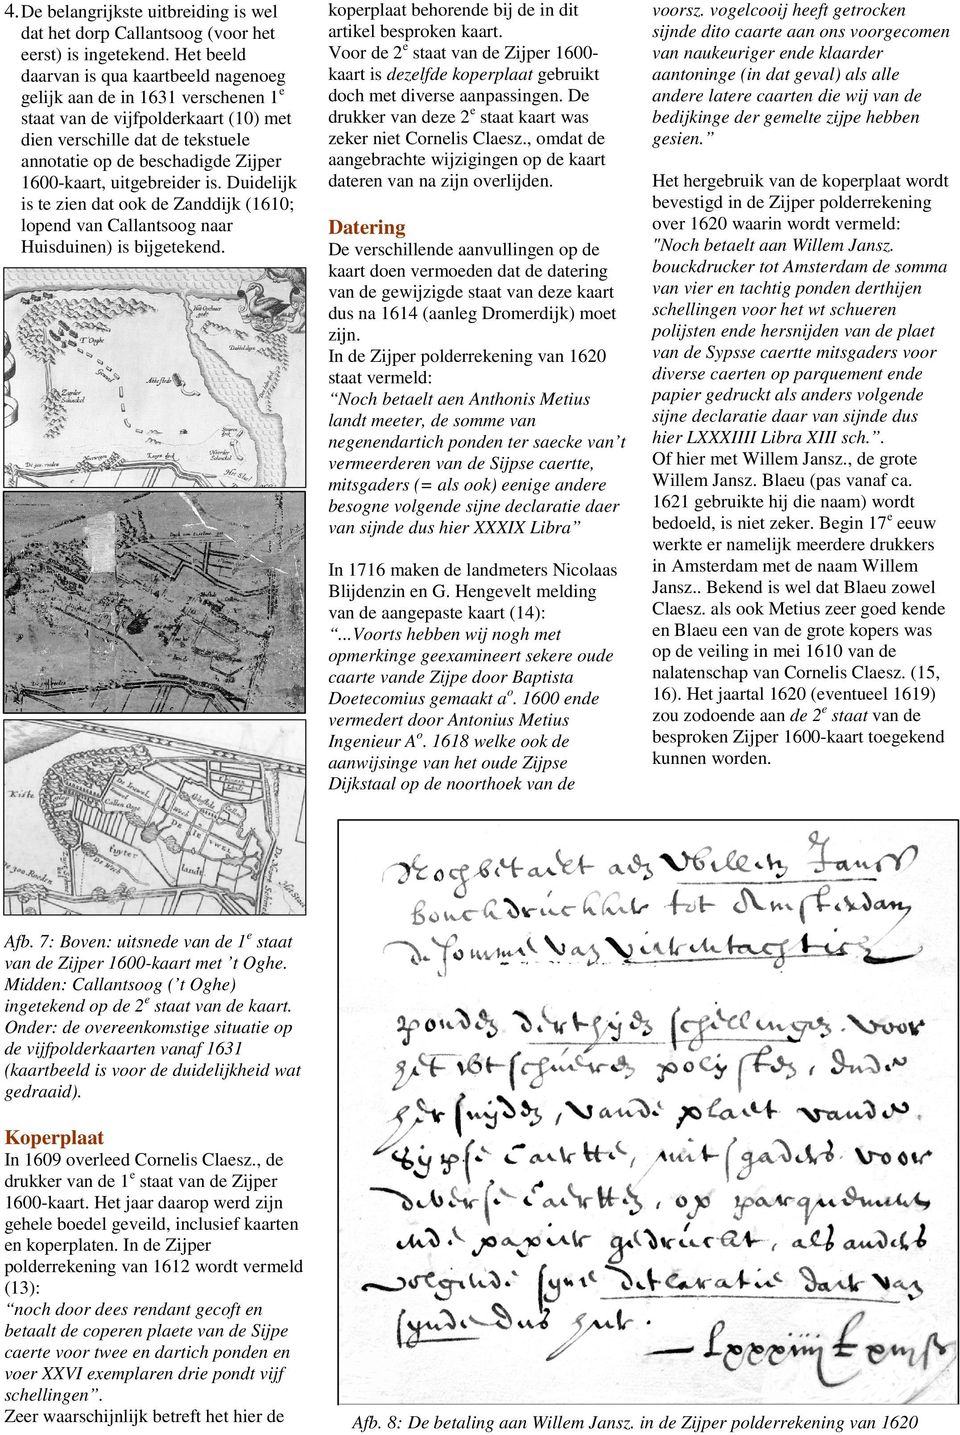 4. De belangrijkste uitbreiding is wel
dat het dorp Callantsoog (voor het
eerst) is ingetekend. Het beeld
daarvan is qua kaartbeeld nagenoeg
gelijk aan de in 1631 verschenen 1e
staat van de vijfpolderkaart (10) met
dien verschille dat de tekstuele
annotatie op de beschadigde Zijper
1600-kaart, uitgebreider is. Duidelijk
is te zien dat ook de Zanddijk (1610;
lopend van Callantsoog naar
Huisduinen) is bijgetekend.
T' Oghe
Abbestede
Zuyder Schinckel
Noorder Schinckel
Kiste
Afb. 7: Boven: uitsnede van de 1e staat
van de Zijper 1600-kaart met ’t Oghe.
Midden: Callantsoog (’t Oghe)
ingetekend op de 2e staat van de kaart.
Onder: de overeenkomstige situatie op
de vijfpolderkaarten vanaf 1631
(kaartbeeld is voor de duidelijkheid wat
gedraaid).
Koperplaat
In 1609 overleed Cornelis Claesz., de
drukker van de 1e staat van de Zijper
1600-kaart. Het jaar daarop werd zijn
gehele boedel geveild, inclusief kaarten
en koperplaten. In de Zijper
polderrekening van 1612 wordt vermeld
(13):
“noch door dees rendant gecoft en
betaalt de coperen plaete van de Sijpe
caerte voor twee en dartich ponden en
voer XXVI exemplaren drie pondt vijf
schellingen”.
Zeer waarschijnlijk betreft het hier de
koperplaat behorende bij de in dit
artikel besproken kaart.
Voor de 2e staat van de Zijper 1600-
kaart is dezelfde koperplaat gebruikt
doch met diverse aanpassingen. De
drukker van deze 2e staat kaart was
zeker niet Cornelis Claesz., omdat de
aangebrachte wijzigingen op de kaart
dateren van na zijn overlijden.
Datering
De verschillende aanvullingen op de
kaart doen vermoeden dat de datering
van de gewijzigde staat van deze kaart
dus na 1614 (aanleg Dromerdijk) moet
zijn.
In de Zijper polderrekening van 1620
staat vermeld:
“Noch betaelt aen Anthonis Metius
landt meeter, de somme van
negenendartich ponden ter saecke van’t
vermeerderen van de Sijpse caertte,
mitsgaders (= als ook) eenige andere
besogne volgende sijne declaratie daer
van sijnde dus hier XXXIX Libra”
In 1716 maken de landmeters Nicolaas
Blijdenzin en G. Hengevelt melding
van de aangepaste kaart (14):
“...Voorts hebben wij nogh met
opmerkinge geexamineert sekere oude
caarte vande Zijpe door Baptista
Doetecomius gemaakt ao. 1600 ende
vermedert door Antonius Metius
Ingenieur Ao. 1618 welke ook de
aanwijsinge van het oude Zijpse
Dijkstaal op de noorthoek van de
voorsz. vogelcooij heeft getrocken
sijnde dito caarte aan ons voorgecomen
van naukeuriger ende klaarder
aantoninge (in dat geval) als alle
andere latere caarten die wij van de
bedijkinge der gemelte zijpe hebben
gesien.”
Het hergebruik van de koperplaat wordt
bevestigd in de Zijper polderrekening
over 1620 waarin wordt vermeld:
"Noch betaelt aan Willem Jansz.
bouckdrucker tot Amsterdam de somma
van vier en tachtig ponden derthijen
schellingen voor het wt schueren
polijsten ende hersnijden van de plaet
van de Sypsse caertte mitsgaders voor
diverse caerten op parquement ende
papier gedruckt als anders volgende
sijne declaratie daar van sijnde dus
hier LXXXIIII Libra XIII sch.”.
Of hier met Willem Jansz., de grote
Willem Jansz. Blaeu (pas vanaf ca.
1621 gebruikte hij die naam) wordt
bedoeld, is niet zeker. Begin 17e eeuw
werkte er namelijk meerdere drukkers
in Amsterdam met de naam Willem
Jansz.. Bekend is wel dat Blaeu zowel
Claesz. als ook Metius zeer goed kende
en Blaeu een van de grote kopers was
op de veiling in mei 1610 van de
nalatenschap van Cornelis Claesz. (15,
16). Het jaartal 1620 (eventueel 1619)
zou zodoende aan de 2e staat van de
besproken Zijper 1600-kaart toegekend
kunnen worden.
Noch betaelt aen Willem Jansz
bouckdrucker tot Amsterdam
de Somme van vierentachtich
ponden derthijen schellingen voor
het wt schueren polijsten, ende
hersnijden, vande plaet vande
Sijpse Caertte, mitsgaders voor
diverse Caertten, op parquement
ende papier gedruckt, als anders
volgende syne declaratie daer van
synde dus hier.
Afb. 8: De betaling aan Willem Jansz. in de Zijper polderrekening van 1620